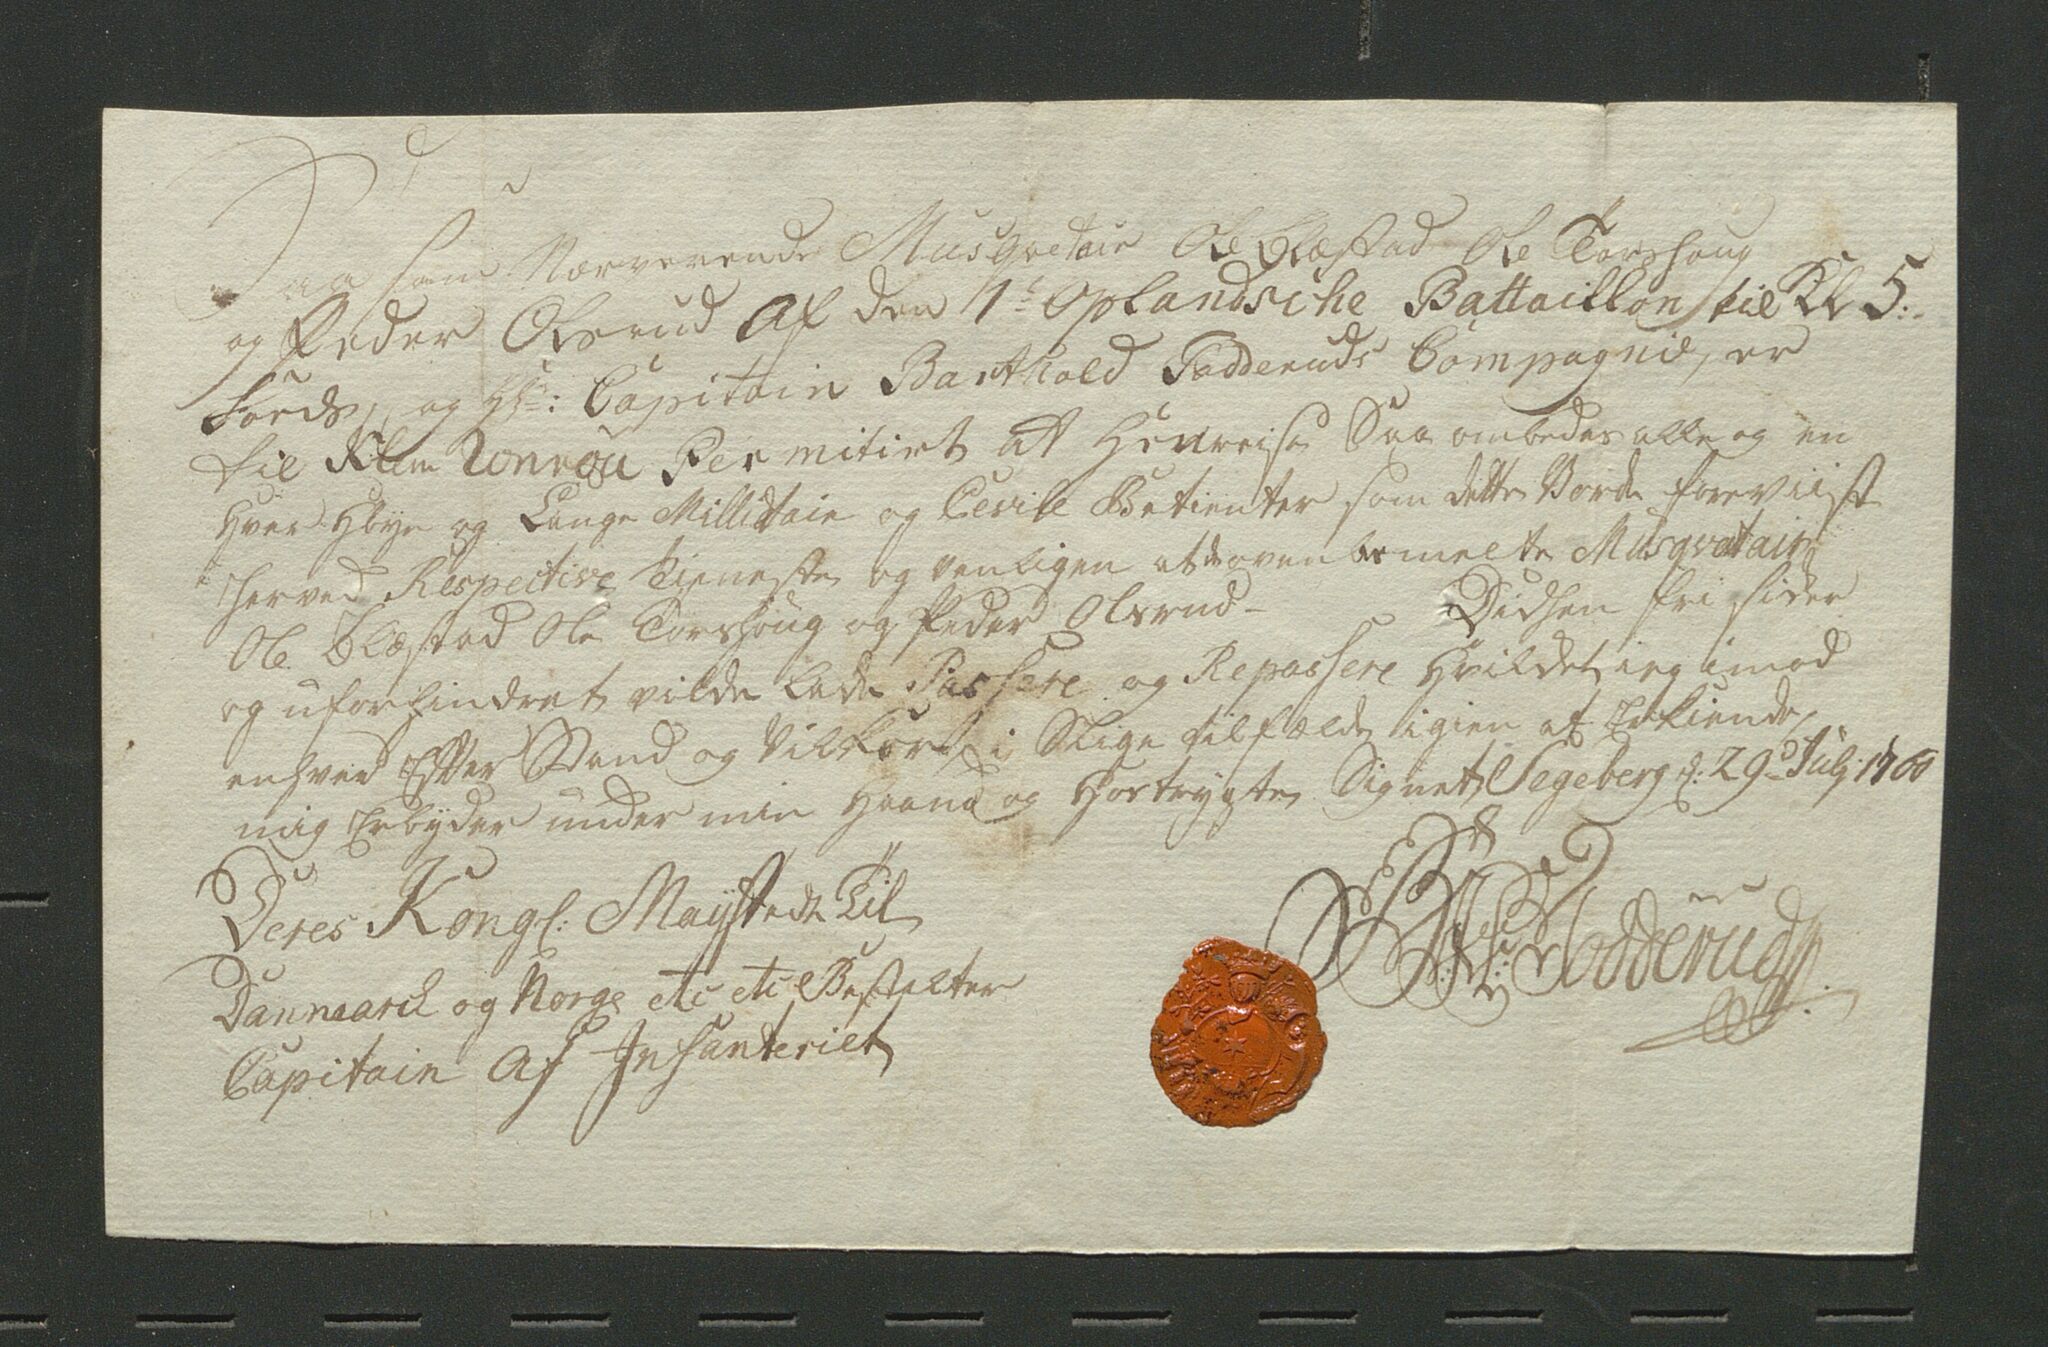 Saasom Nærværende Musqvetair Ole Blæstad Ole Torshoug
og Peder Olsrud Af den 1ste Oplandsche Battaillon til Kl 5:
fords, og Hr: Capitain Barthold Todderuds Compagnie, er
til Permitirt at Henreise Saa ombedes alle og en
Hver Høye og Lauge Millidtair og Cevile Betienter som dette Vorde foreviist
herved Respective tieneste og venligen at de ovenbemelte Musqvetair
Ole Blæstad Ole Torshoug og Peder Olsrud - Didhen fri sicker
og uforhindret vilde lade Passere og Repassere Hvildet ieg imod
enhver Efter Stand og Vilkor i Slige tilfælde igien at Erkiende
mig Erbyder under min Haand og Hostrygte Signet Segeberg d: 29d July 1760
Deres Kongl: Mayestedt Til
Dannmarck og Norge etc etc Bestalter
Capitain Af Infanteriet
Todderud